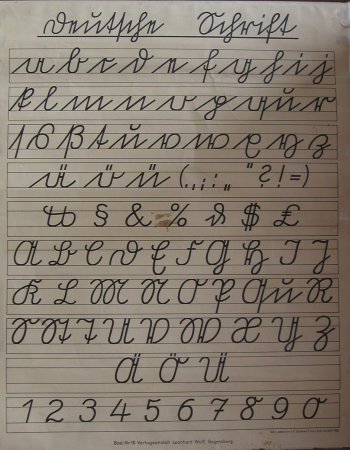 Deutsche Schrift
a b c d e f g h i j
k l m n o p q u r
s ß t u v w x y z
ä ö ü ( . , ; : „ " ? ! = )
§ & % $ £
A B C D E F G H I J
K L M N O P Qu R
S St T U V W X Y Z
Ä Ö Ü
1 2 3 4 5 6 7 8 9 0
Best-Nr 18 Verlagsanstalt Leonhard Wolf, Regensburg.